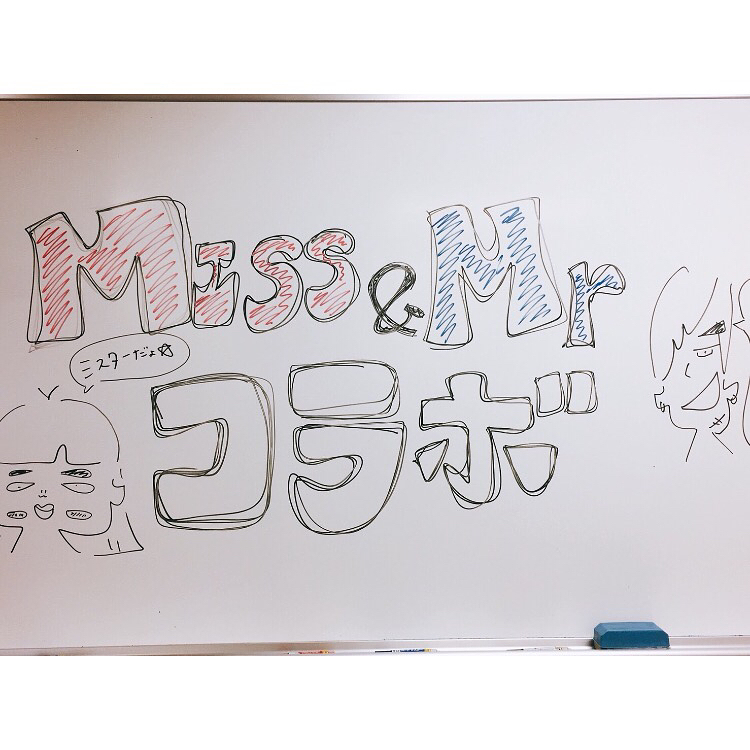 Miss & Mr
ミスターだよ☆
コラボ